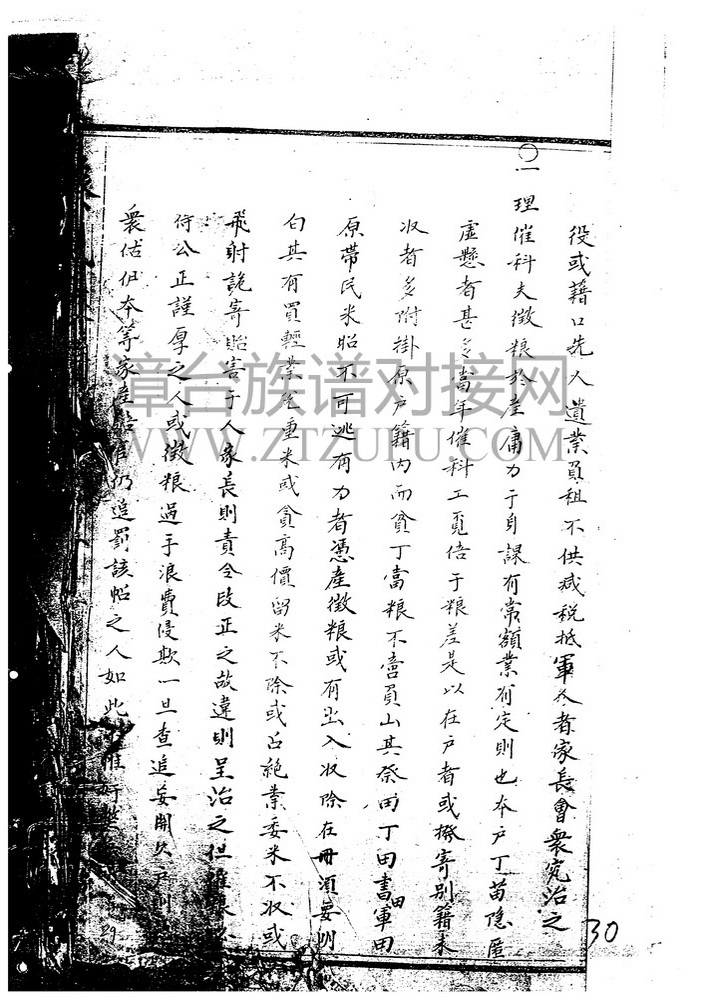 役或藉口先人遺業負租不供减税抵軍叅者家長會衆究治之
〇一理催科夫徵粮於產庸力于身課有常額業有定則也本戶丁苗隐匿
虛懸者甚多當年催科工覔倍于粮差是以在戶者或撥寄别籍未
收者多附掛原戶籍內而貧丁當粮不啻負山其祭田丁田書田軍田
原帶民米昭不可逃有力者憑產徵粮或有出入收除在冊須要明
白其有買輕業包重米或貪高價留米不除或占絶業委米不收或
飛射詭寄貽害于人家長則責令改正之故違則呈治之但催
侍公正謹厚之人或徵粮過手浪費侵欺一旦查追妄開欠戶
衆估伊本等家產賠 仍追罰該帖之人如此
章台族谱对接网
WWW.ZTZUPU.COM
30
29